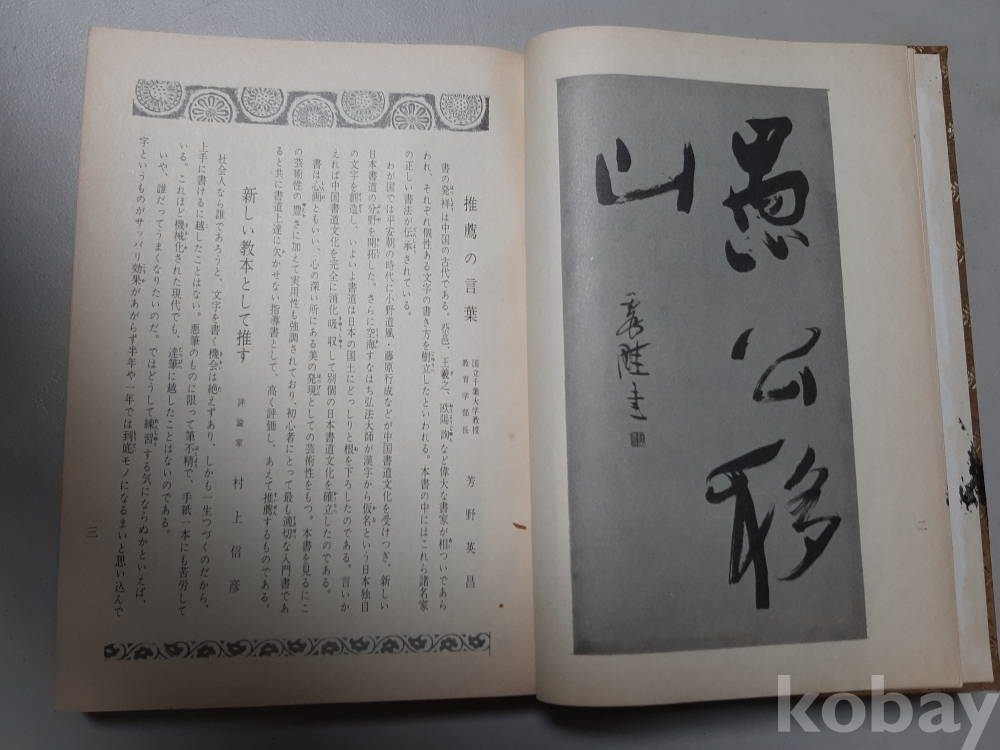 愚公移
山
二
推薦の言葉
国立千葉大学教授
教育学部長
芳野英昌
書の発祥は中国の古代である。蔡邕、王羲之、欧陽詢など偉大な書家が相ついであら
われ、それぞれ個性ある文字の書き方を樹立したといわれる。本書の中にはこれら諸名家
の正しい書法が伝承されている。
わが国では平安朝の時代に小野道風・藤原行成などが中国書道文化を受けつぎ、新しい
日本書道の分野を開拓した。さらに空海すなはち弘法大師が漢字から仮名という日本独自
の文字を創造し、いよいよ書道は日本の国土にどっしりと根を下ろしたのである。言いか
えれば中国書道文化を完全に消化吸収して別個の日本書道文化を確立したのである。
書は心画ともいい、心の深い所にある美の発現としての芸術性をもつ。本書を見るにこ
の芸術性の豊さに加えて実用性も強調されており、初心者にとって最も適切な入門書であ
ると共に書道上達に欠かせない指導書として、高く評価し、あえて推薦するものである。
新しい教本として推す
評論家
村上信彦
社会人なら誰であろうと、文字を書く機会は絶えずあり、しかも一生つづくのだから、
上手に書けるに越したことはない。悪筆のものに限って筆不精で、手紙一本にも苦労して
いる。これほど機械化された現代でも、達筆に越したことはないのである。
いや、誰だってうまくなりたいのだ。ではどうして練習する気にならぬかといえば、
字というものがサッパリ効果があがらず半年や一年では到底モノになるまいと思い込んで
三
kobay